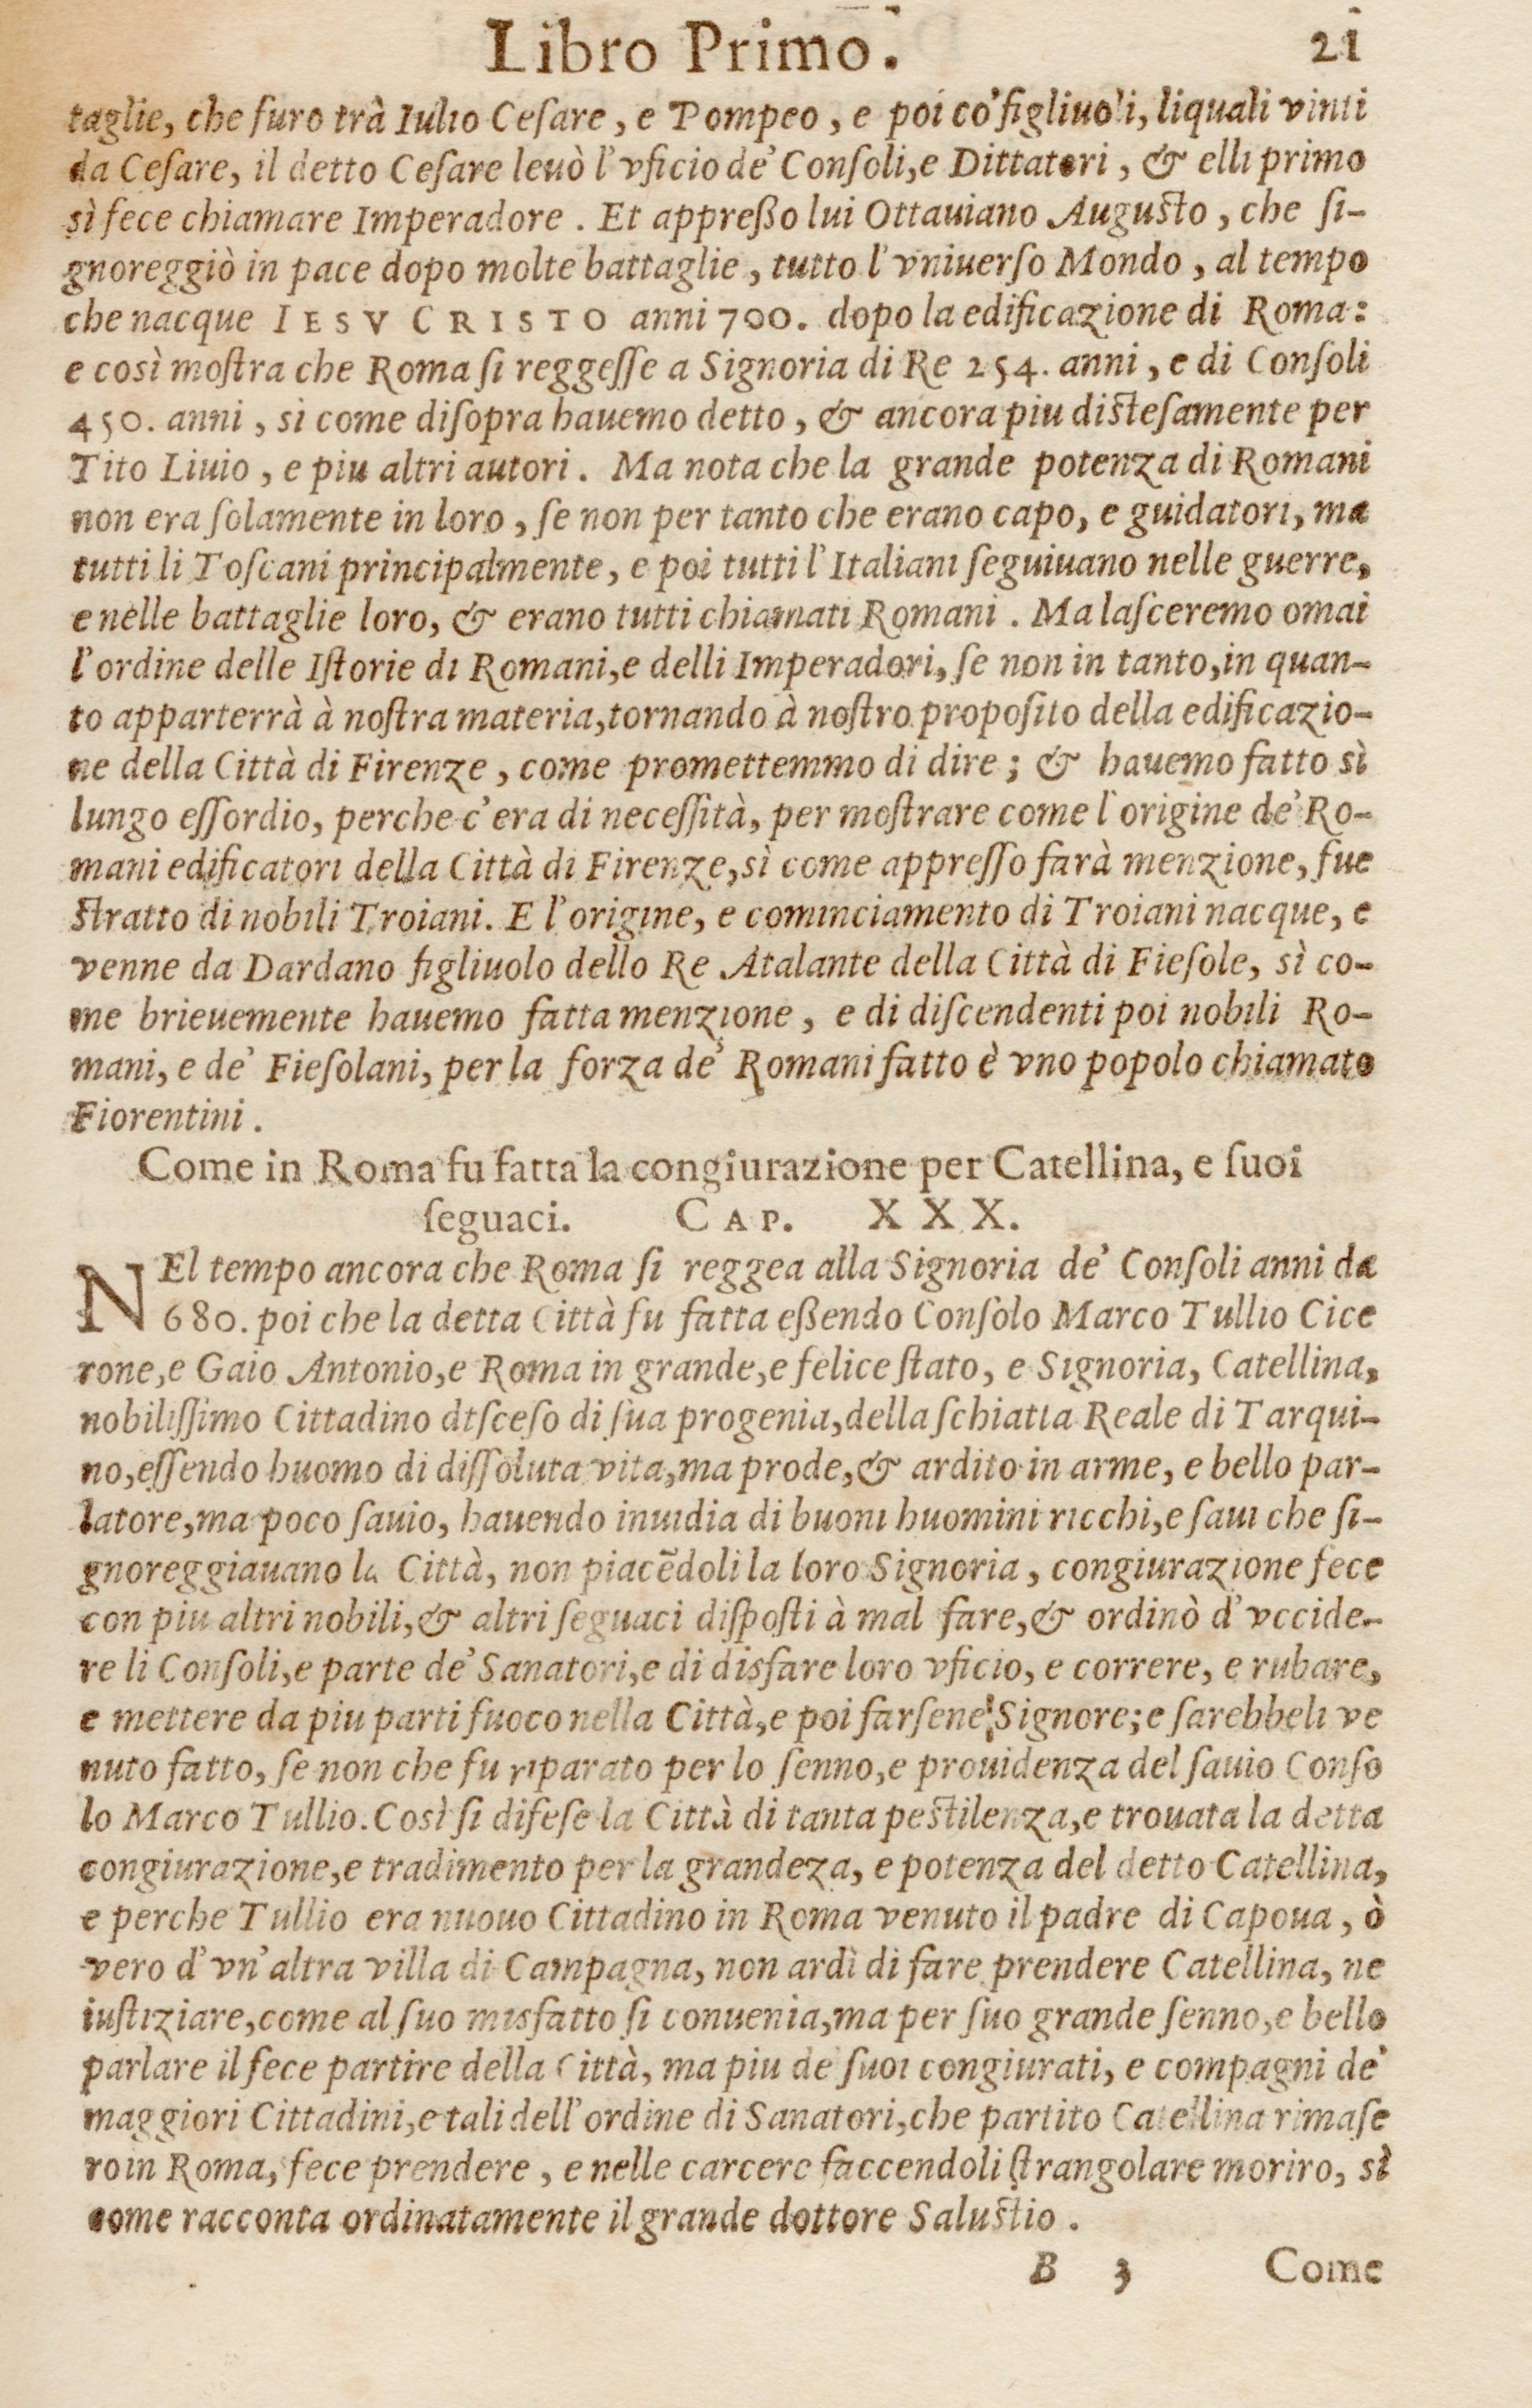 Libro Primo. 21
taglie, che furo trà Iulio Ceſare, e Pompeo, e poi co' figliuoli, liquali vinti
da Ceſare, il detto Ceſare leuò l'vficio de' Conſoli, e Dittatori, & elli primo
sì fece chiamare Imperadore. Et appreßo lui Ottauiano Auguſto, che ſi-
gnoreggiò in pace dopo molte battaglie, tutto l'vniuerſo Mondo, al tempo
che nacque IESV CRISTO anni 700. dopo la edificazione di Roma:
e così moſtra che Roma ſi reggeſſe a Signoria di Re 254. anni, e di Conſoli
450. anni, si come diſopra hauemo detto, & ancora piu diſteſamente per
Tito Liuio, e piu altri autori. Ma nota che la grande potenza di Romani
non era ſolamente in loro, ſe non per tanto che erano capo, e guidatori, ma
tutti li Toſcani principalmente, e poi tutti l'Italiani ſeguiuano nelle guerre,
e nelle battaglie loro, & erano tutti chiamati Romani. Ma laſceremo omai
l'ordine delle Iſtorie di Romani, e delli Imperadori, ſe non in tanto, in quan-
to apparterrà à noſtra materia, tornando à noſtro propoſito della edificazio-
ne della Città di Firenze, come promettemmo di dire; & hauemo fatto sì
lungo eſſordio, perche c'era di neceſſità, per moſtrare come l'origine de' Ro-
mani edificatori della Città di Firenze, sì come appreſſo farà menzione, fue
ſtratto di nobili Troiani. E l'origine, e cominciamento di Troiani nacque, e
venne da Dardano figliuolo dello Re Atalante della Città di Fieſole, sì co-
me brieuemente hauemo fatta menzione, e di diſcendenti poi nobili Ro-
mani, e de' Fieſolani, per la forza de' Romani fatto è vno popolo chiamato
Fiorentini.
Come in Roma fu fatta la congiurazione per Catellina, e ſuoi
ſeguaci. CAP. XXX.
NEl tempo ancora che Roma ſi reggea alla Signoria de' Conſoli anni da
680. poi che la detta Città fu fatta eßendo Conſolo Marco Tullio Cice
rone, e Gaio Antonio, e Roma in grande, e felice ſtato, e Signoria, Catellina,
nobiliſſimo Cittadino dtsceſo di ſua progenia, della ſchiatta Reale di Tarqui-
no, eſſendo huomo di diſſoluta vita, ma prode, & ardito in arme, e bello par-
latore, ma poco ſauio, hauendo inuidia di buoni huomini ricchi, e ſaui che ſi-
gnoreggiauano la Città, non piacẽdoli la loro Signoria, congiurazione fece
con piu altri nobili, & altri ſeguaci diſpoſti à mal fare, & ordinò d'vccide-
re li Conſoli, e parte de' Sanatori, e di disfare loro vficio, e correre, e rubare,
e mettere da piu parti fuoco nella Città, e poi farſene Signore; e sarebbeli ve
nuto fatto, ſe non che fu riparato per lo ſenno, e prouidenza del ſauio Conſo
lo Marco Tullio. Così ſi difeſe la Città di tanta peſtilenza, e trouata la detta
congiurazione, e tradimento per la grandeza, e potenza del detto Catellina,
e perche Tullio era nuouo Cittadino in Roma venuto il padre di Capoua, ò
vero d'vn'altra villa di Campagna, non ardì di fare prendere Catellina, ne
iuſtiziare, come al ſuo misfatto ſi conuenia, ma per ſuo grande ſenno, e bello
parlare il fece partire della Città, ma piu de' ſuoi congiurati, e compagni de'
maggiori Cittadini, e tali dell'ordine di Sanatori, che partito Catellina rimaſe
ro in Roma, fece prendere, e nelle carcere faccendoli ſtrangolare moriro, sì
come racconta ordinatamente il grande dottore Saluſtio.
B 3 Come